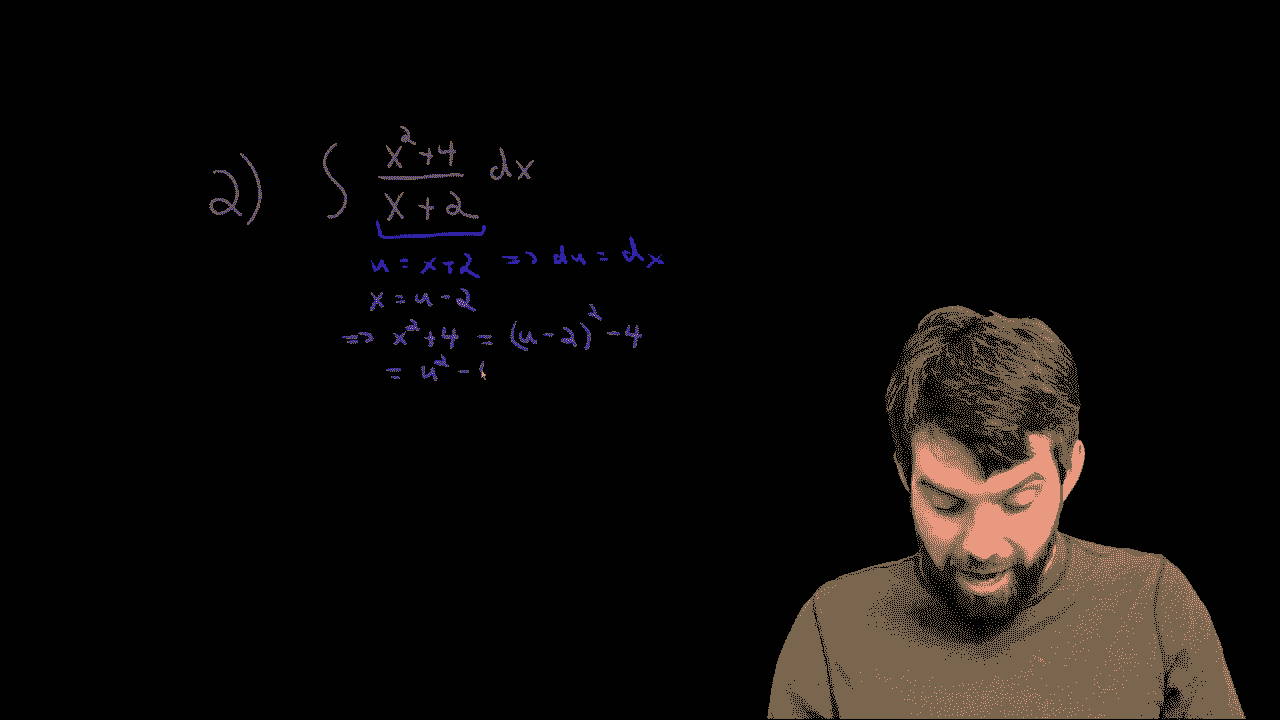 2) ∫ x²+4 / x+2 dx
u = x+2 => du = dx
x = u-2
=> x²+4 = (u-2)²-4
= u² -